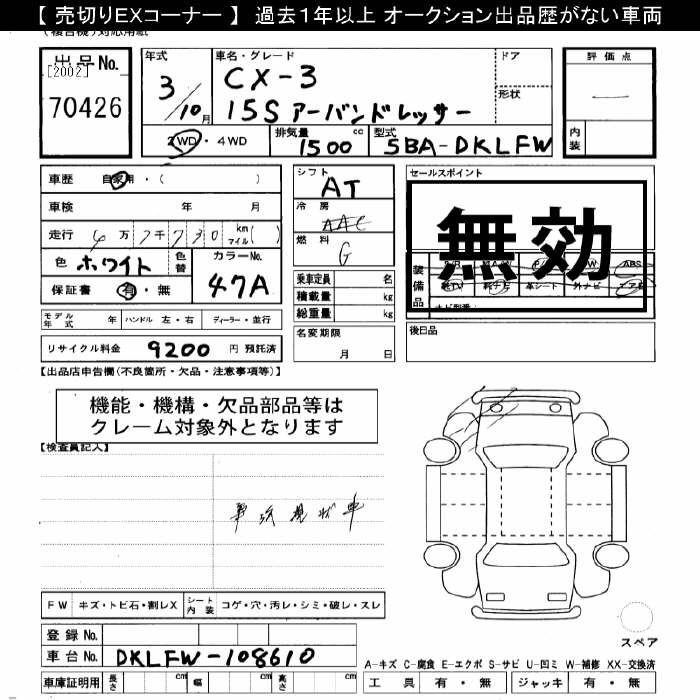 【 売切りEXコーナー 】 過去1年以上 オークション出品歴がない車両
出品No.
[2002]
70426
年式
3/10月
車名・グレード
CX-3
15S アーバンドレッサー
ドア
形状
評価点
内装
2WD・4WD
排気量 1500 cc
型式 5BA-DKLFW
車歴 自家用・( )
車検 年 月
走行 4万7千730 km マイル( )
色 ホワイト 色替
カラーNo. 47A
保証書 有・無
シフト AT
冷房 AAC
燃料 G
乗車定員 名
積載量 kg
総重量 kg
名変期限 月 日
セールスポイント
無効
装備品
ABS
革シート
外ナビ
エアB
後日品
モデル年式 年
ハンドル 左・右
ディーラー・並行
リサイクル料金 9200 円 預託済
【出品店申告欄(不良箇所・欠品・注意事項等)】
機能・機構・欠品部品等は
クレーム対象外となります
【検査員記入】
事故現状車
FW キズ・トビ石・割レX
シート内装 コゲ・穴・汚レ・シミ・破レ・スレ
登録No.
車台No. DKLFW-108610
車庫証明用 長さ cm 幅 cm 高さ cm
スペア
A-キズ C-腐食 E-エクボ S-サビ U-凹ミ W-補修 XX-交換済
工具 有・無 ジャッキ 有・無